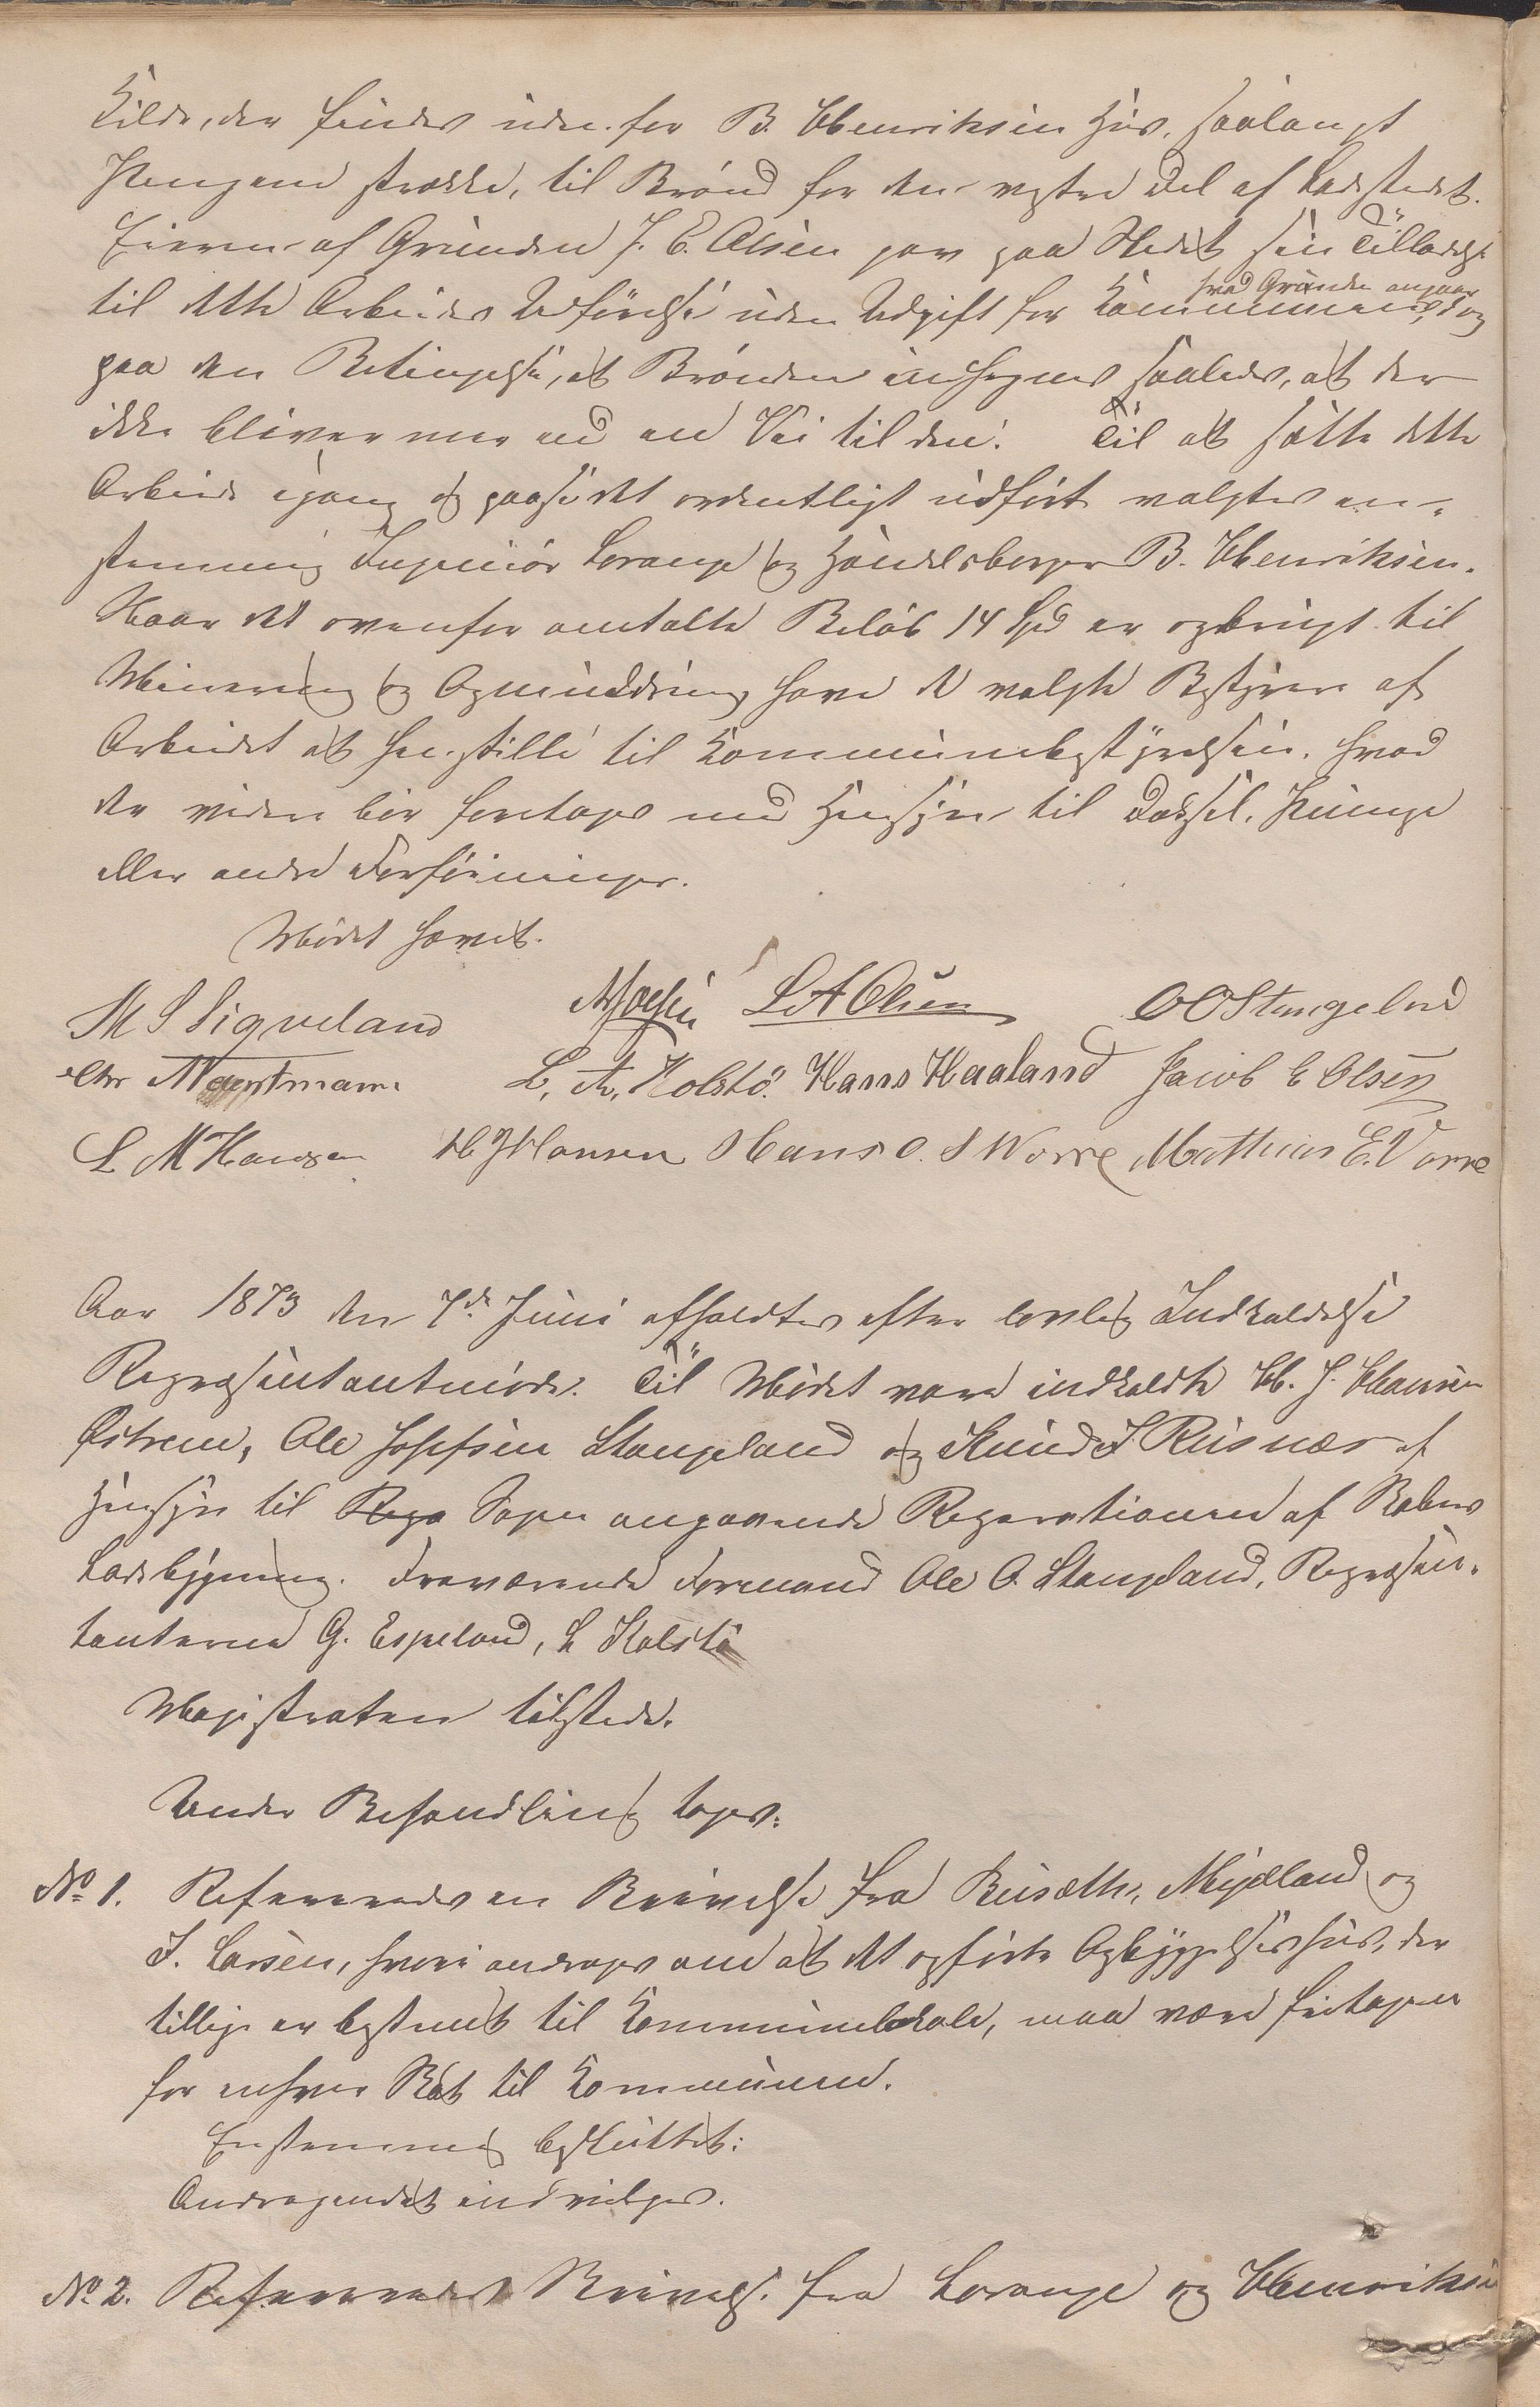 Kilde, der findes uden for B. Henriksens Hus, saalangt
Pengene strække, til Brönd for den vestre Del af Ladestedet.
Eieren af Grunden J. E. Olsen gav paa Stedet sin Tilladelse
til dette Arbeides Udförelse uden Udgift for Kommunen, hvad Grunden angaar, dog
paa den Betingelse, at Brönden indhegnes saaledes, at der
ikke bliver mer end en Vei til den. Til at sætte dette
Arbeide igang og paase det ordentligt udfört valgtes en-
stemmig Ingeniör Lorange og Handelsborger B. Henriksen.
Naar det ovenfor omtalte Belöb 14 Spd er opbrugt til
Minering og Opmudring, have de valgte Bestyrere af
Arbeidet at henstille til Kommunebestyrelsen, hvad
der videre bör foretages med Hensyn til Dæksel, Pumpe
eller andre Forföininger.
Mödet hævet.
M S Sigveland L A Olsen O O Stangeland
Chr L. Th. Kolstö. Hans Haaland Jacob E Olsen
L M Hansen H J Hansen Hans O. S Worre Mathias E. Vorre
Aar 1873 den 7de Juni afholdtes efter lovlig Indkaldelse
Repræsentantmöde. Til Mödet vare indkaldte H. J. Hansen
Östrem, Ole Josefsen Stangeland og Knud J. Risnæs af
Hensyn til Repa Sagen angaaende Reparationen af Skolens
Ladebygning. Fraværende Formand Ole O. Stangeland, Repræsen-
tanterne G. Espeland, L Kolstö
Magistraten tilstede.
Under Behandling toges:
No 1. Refereredes en Skrivelse fra Mydland og
J. Larsen, hvori andrages om at det opförte Opbyggelseshus, der
tillige er bestemt til Kommunelokale, maa være fritagen
for enhver Skat til Kommunen.
Enstemmig besluttet:
Andragendet indvilges.
No 2. Refereredes Skrivelse fra Lorange og Henriksen